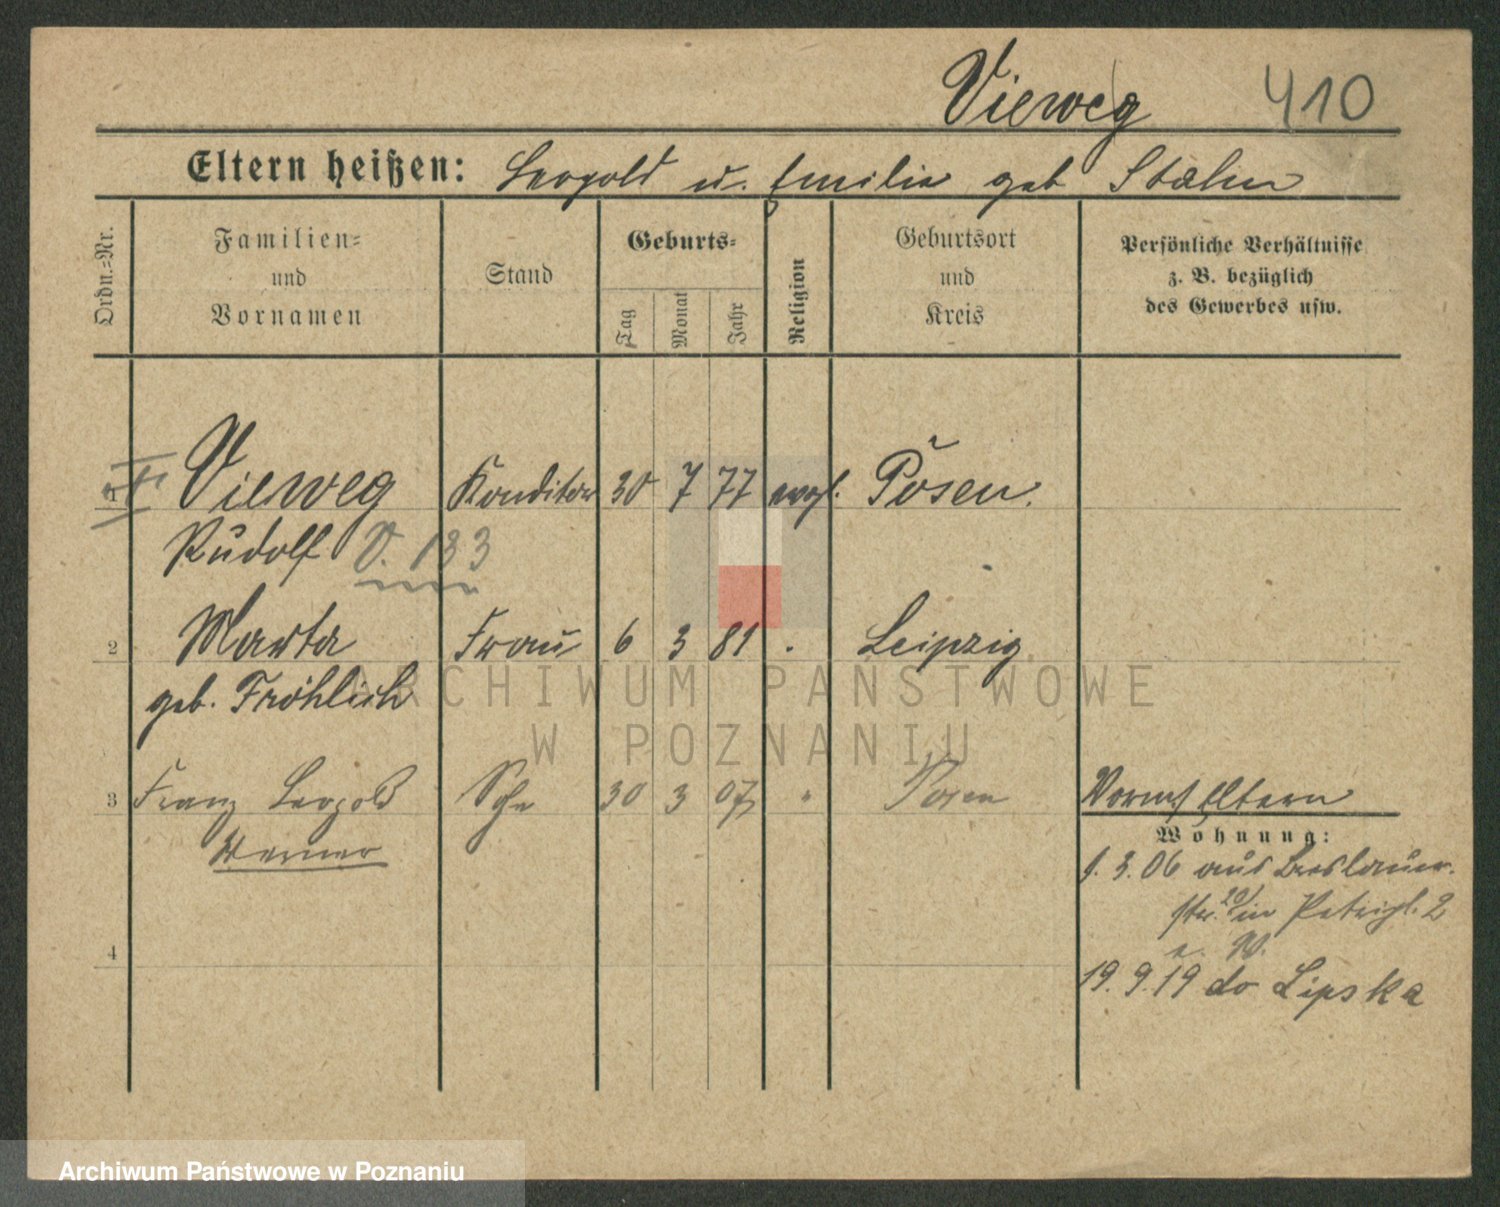 Vieweg 410
Eltern heißen: Leopold u. Emilie geb Stalm
Ordn.-Nr.
Familien-
und
Vornamen
Stand
Geburts-
Tag
Monat
Jahr
Religion
Geburtsort
und
Kreis
Persönliche Verhältnisse
z. B. bezüglich
des Gewerbes usw.
1 Vieweg Konditor 30 7 77 evgl. Posen.
Rudolf V. 133
2 Marta Frau 6 3 81 Leipzig.
geb. Fröhlich
3 Franz Leopold Sohn 30 3 07 " Posen
Werner
Eltern
Wohnung:
1. 3. 06 aus Breslauer-
str. 20 in Petripl. 2
4
19. 9. 19 do Lipska
ARCHIWUM PAŃSTWOWE
W POZNANIU
Archiwum Państwowe w Poznaniu